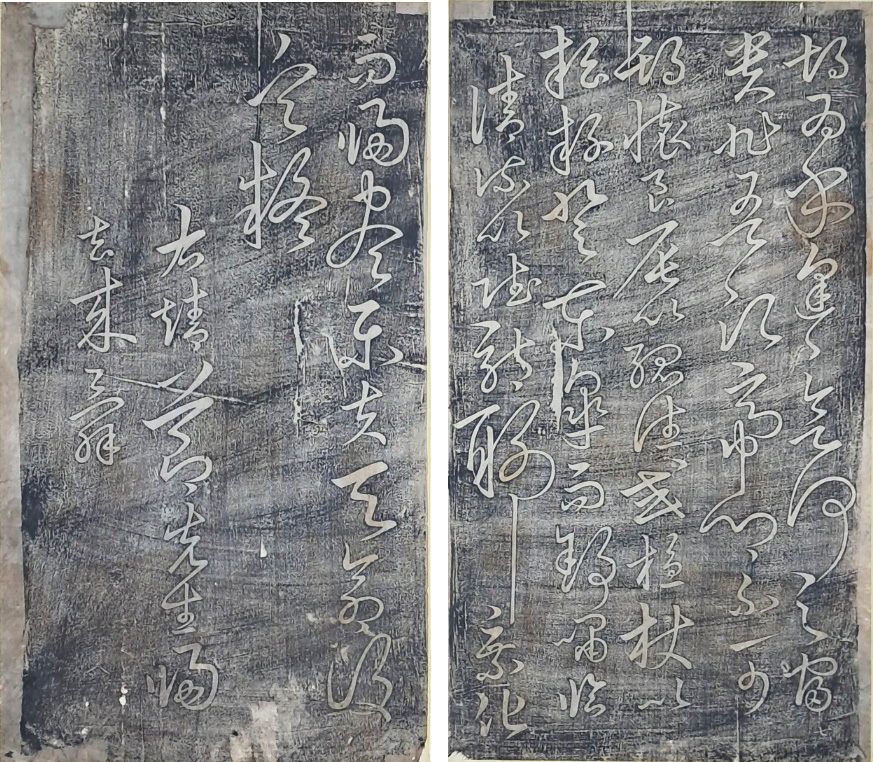 胡為乎遑遑兮何之富
貴非吾願帝鄉不可
期懷良辰以孤往或植杖以
耘耔登東皋而舒嘯臨
清流以賦詩聊乘化
而歸盡樂夫天命復
奚疑
右靖節先生歸
去來辭